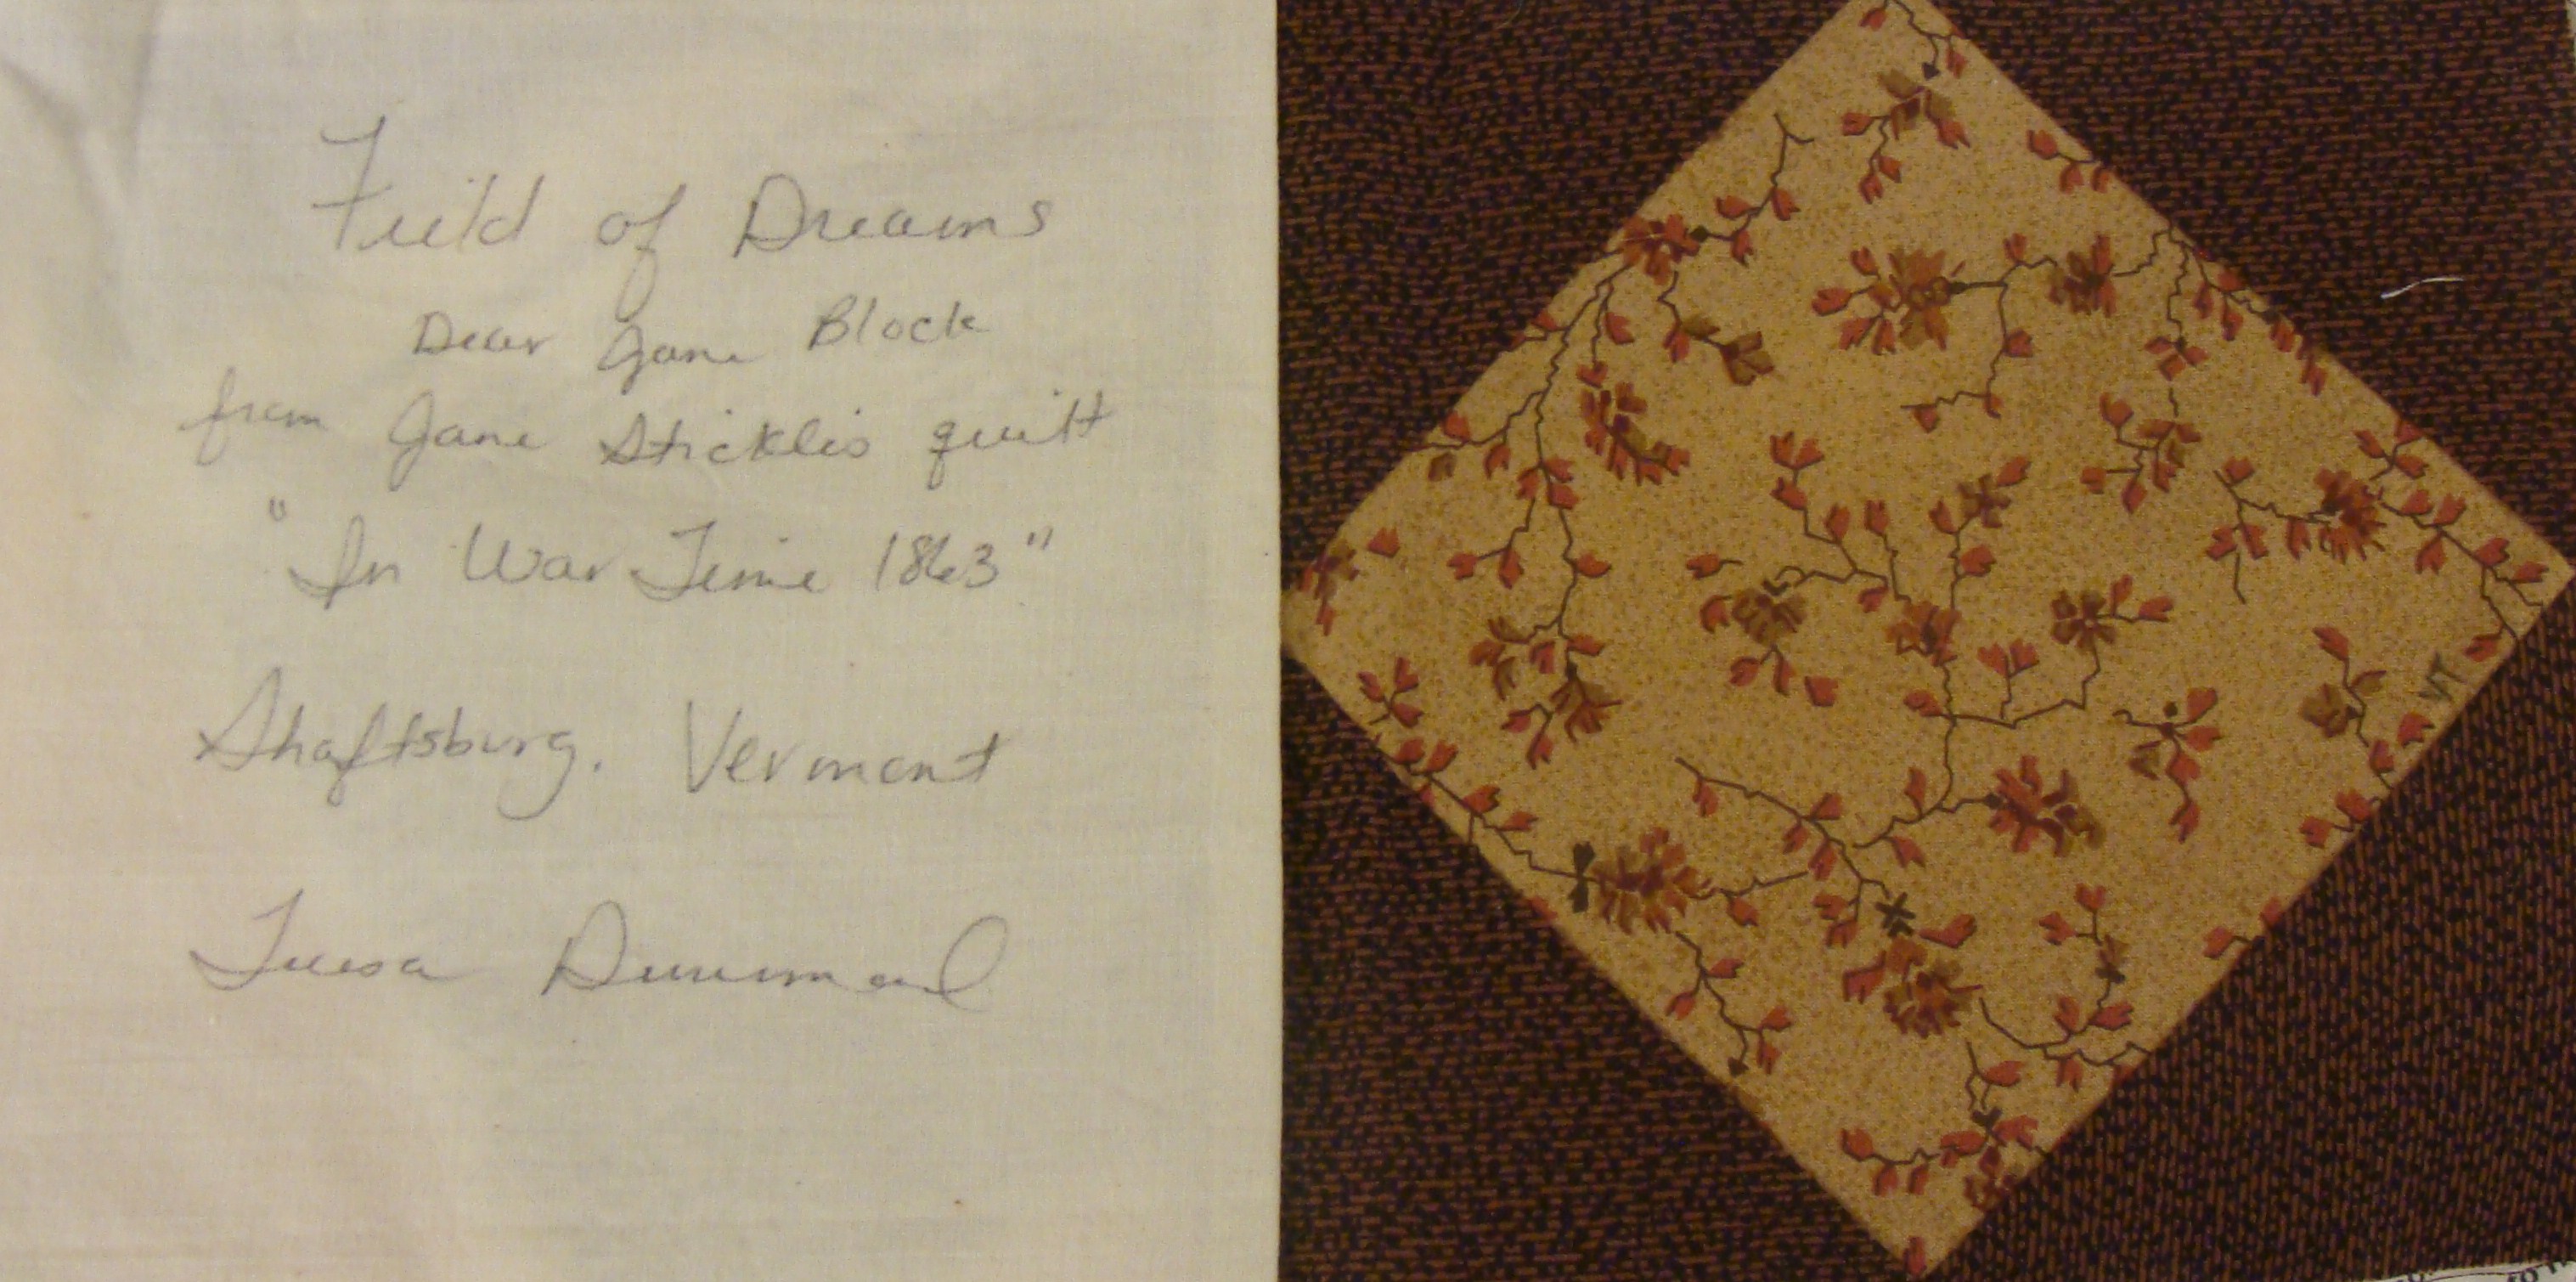 Field of Dreams
Dear Jane Block
from Jane Stickles quilt
"In War Time 1863"
Shaftsburg. Vermont
VT